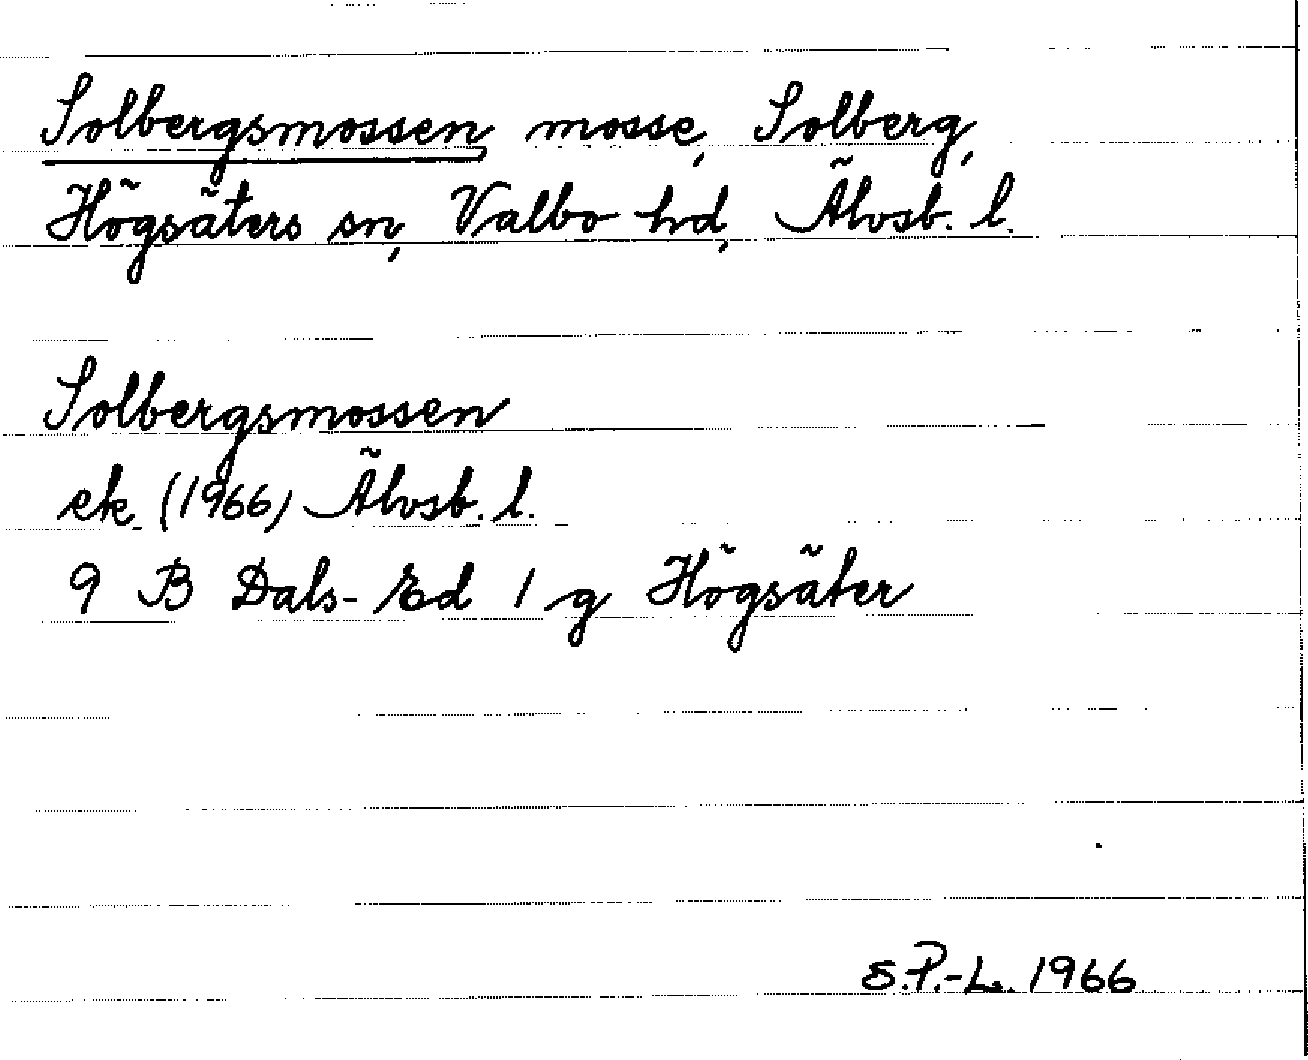 Solbergsmossen, mosse, Solberg,
Högsäters sn, Valbo hd, Älvsb. l.
Solbergsmossen
ek (1966) Älvsb. l.
9 B Dals-Ed 1 g Högsäter
S.P.-L. 1966